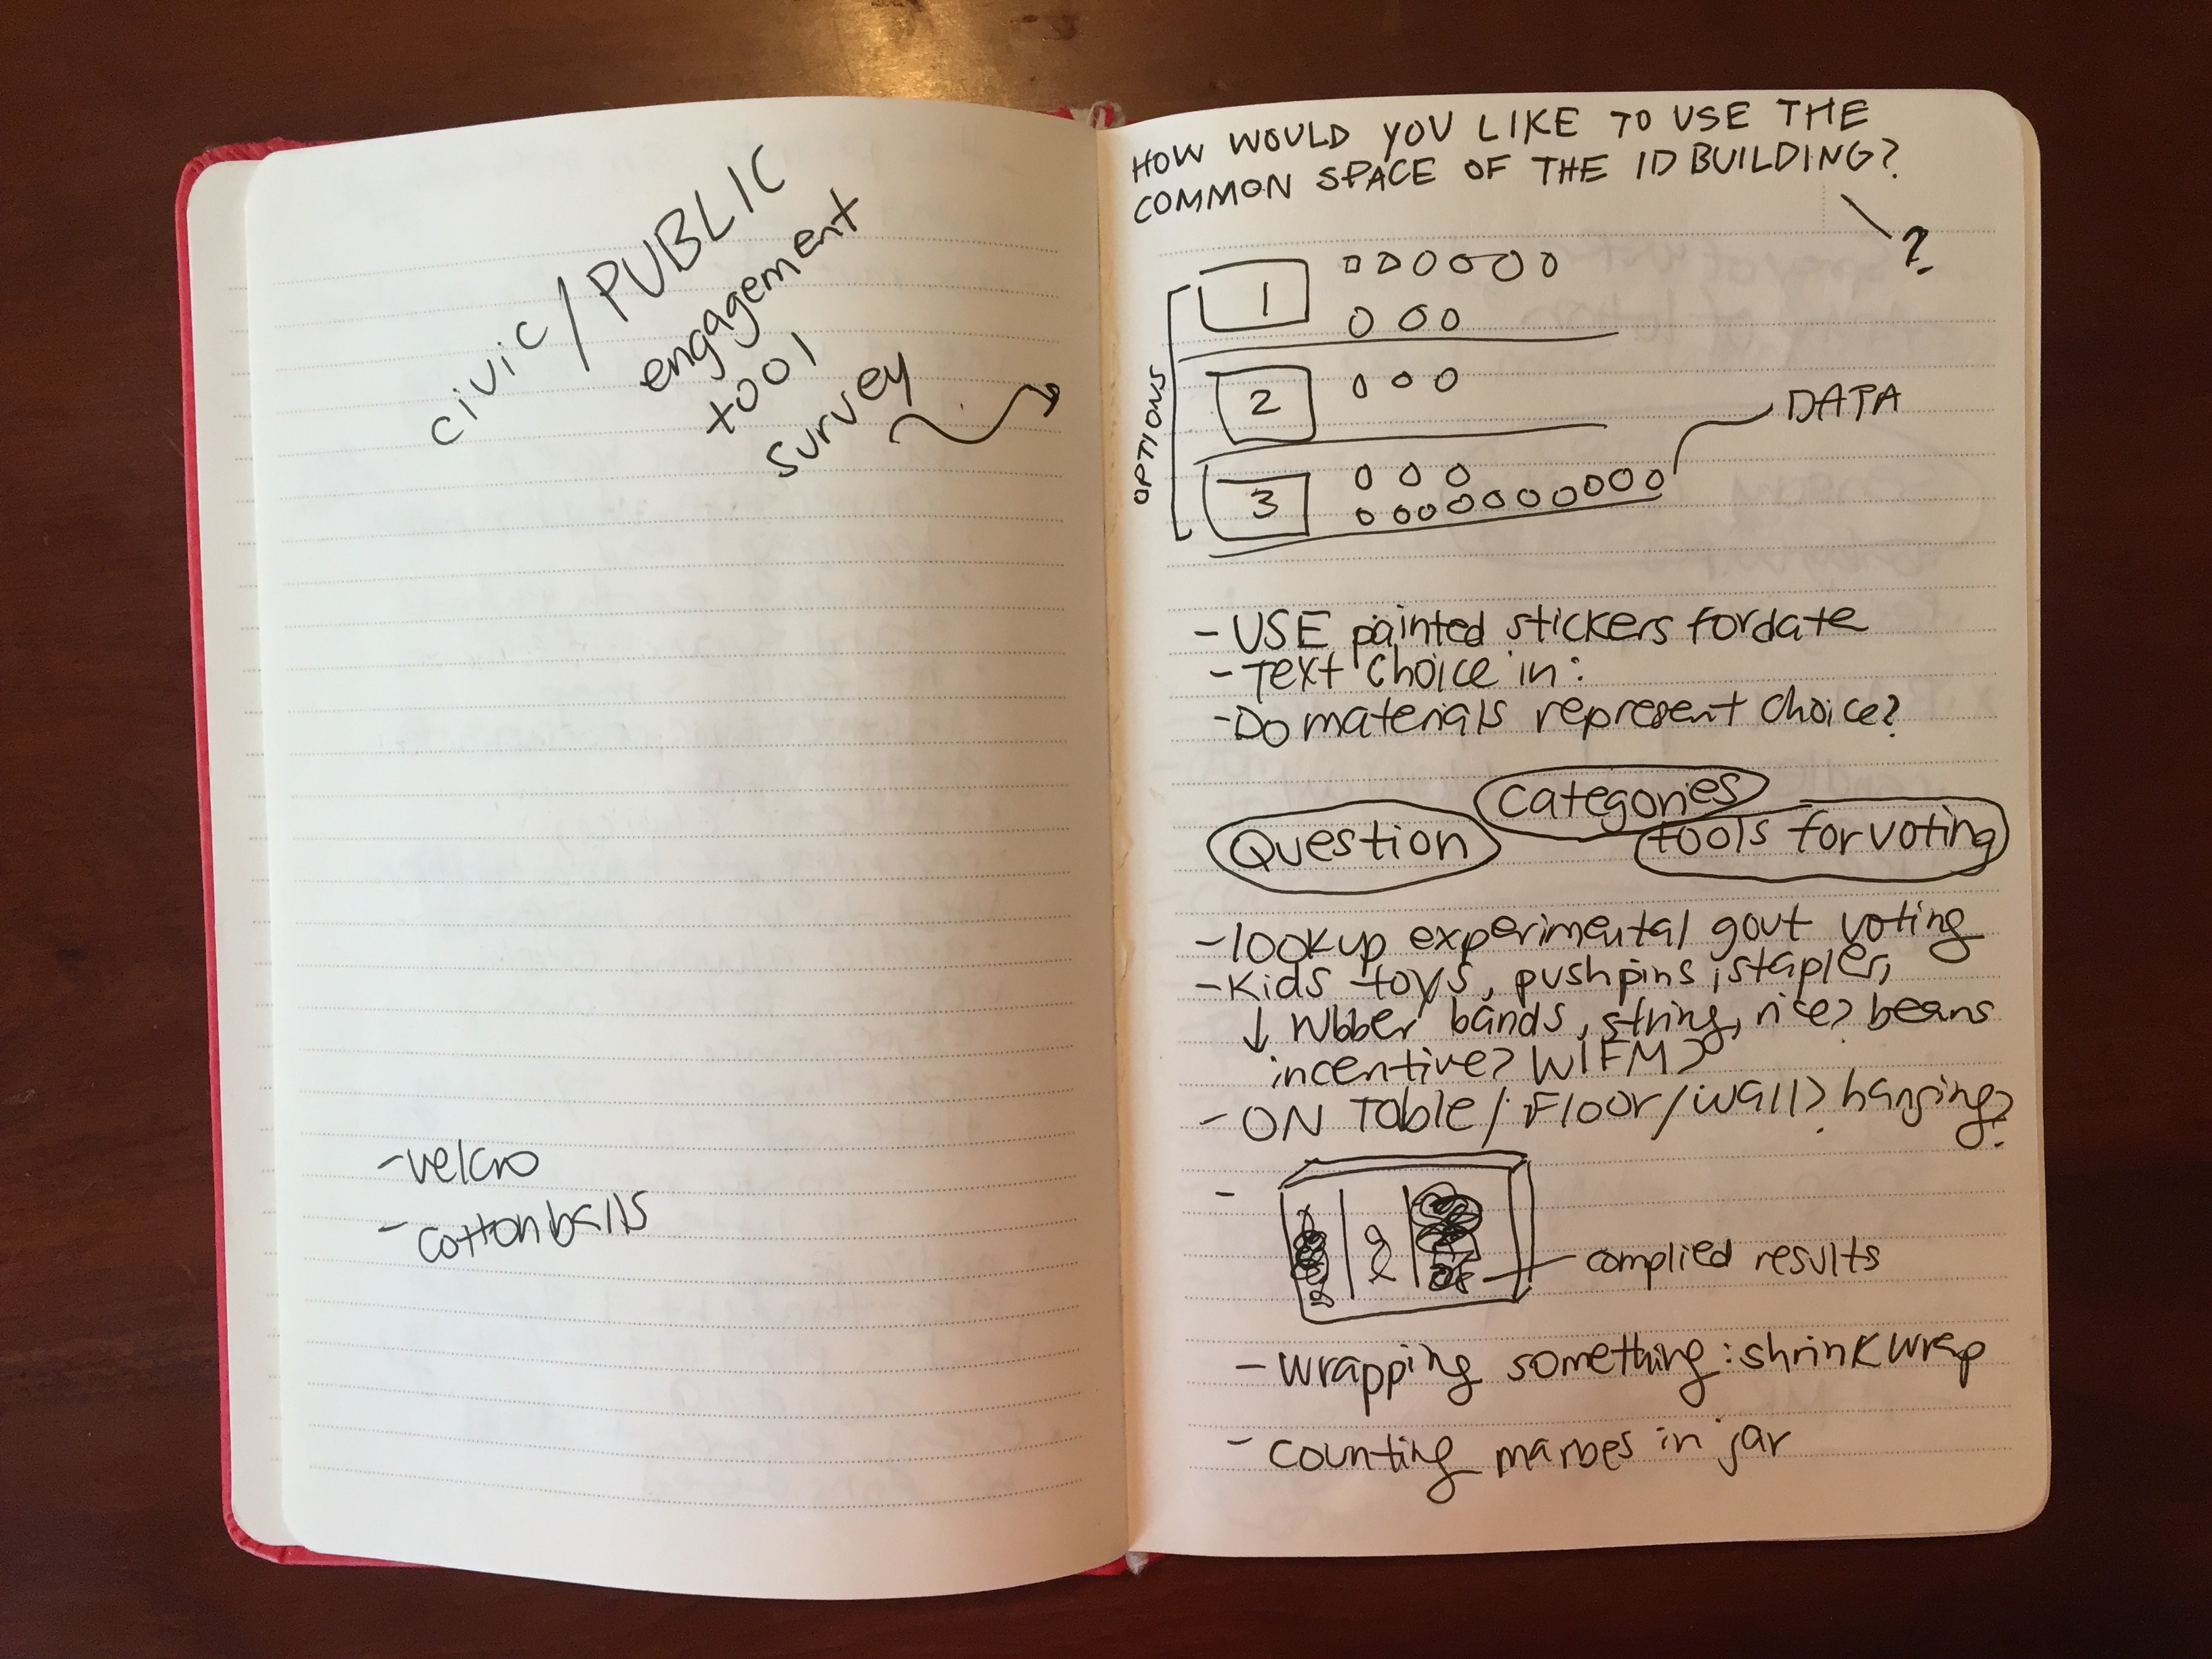 civic / PUBLIC
engagement
tool
survey
-velcro
- cotton balls
HOW WOULD YOU LIKE TO USE THE
COMMON SPACE OF THE ID BUILDING?
?
OPTIONS
1
2
DATA
3
- USE painted stickers for date
- Text choice in:
- Do materials represent choice?
categories
Question
tools for voting
- lookup experimental govt voting
- Kids toys, pushpins, stapler,
↓ rubber bands, string, rice? beans
incentive? WIFM?
- ON Table / Floor / wall? hanging?
-
complied results
- wrapping something: shrink wrap
- counting marbes in jar